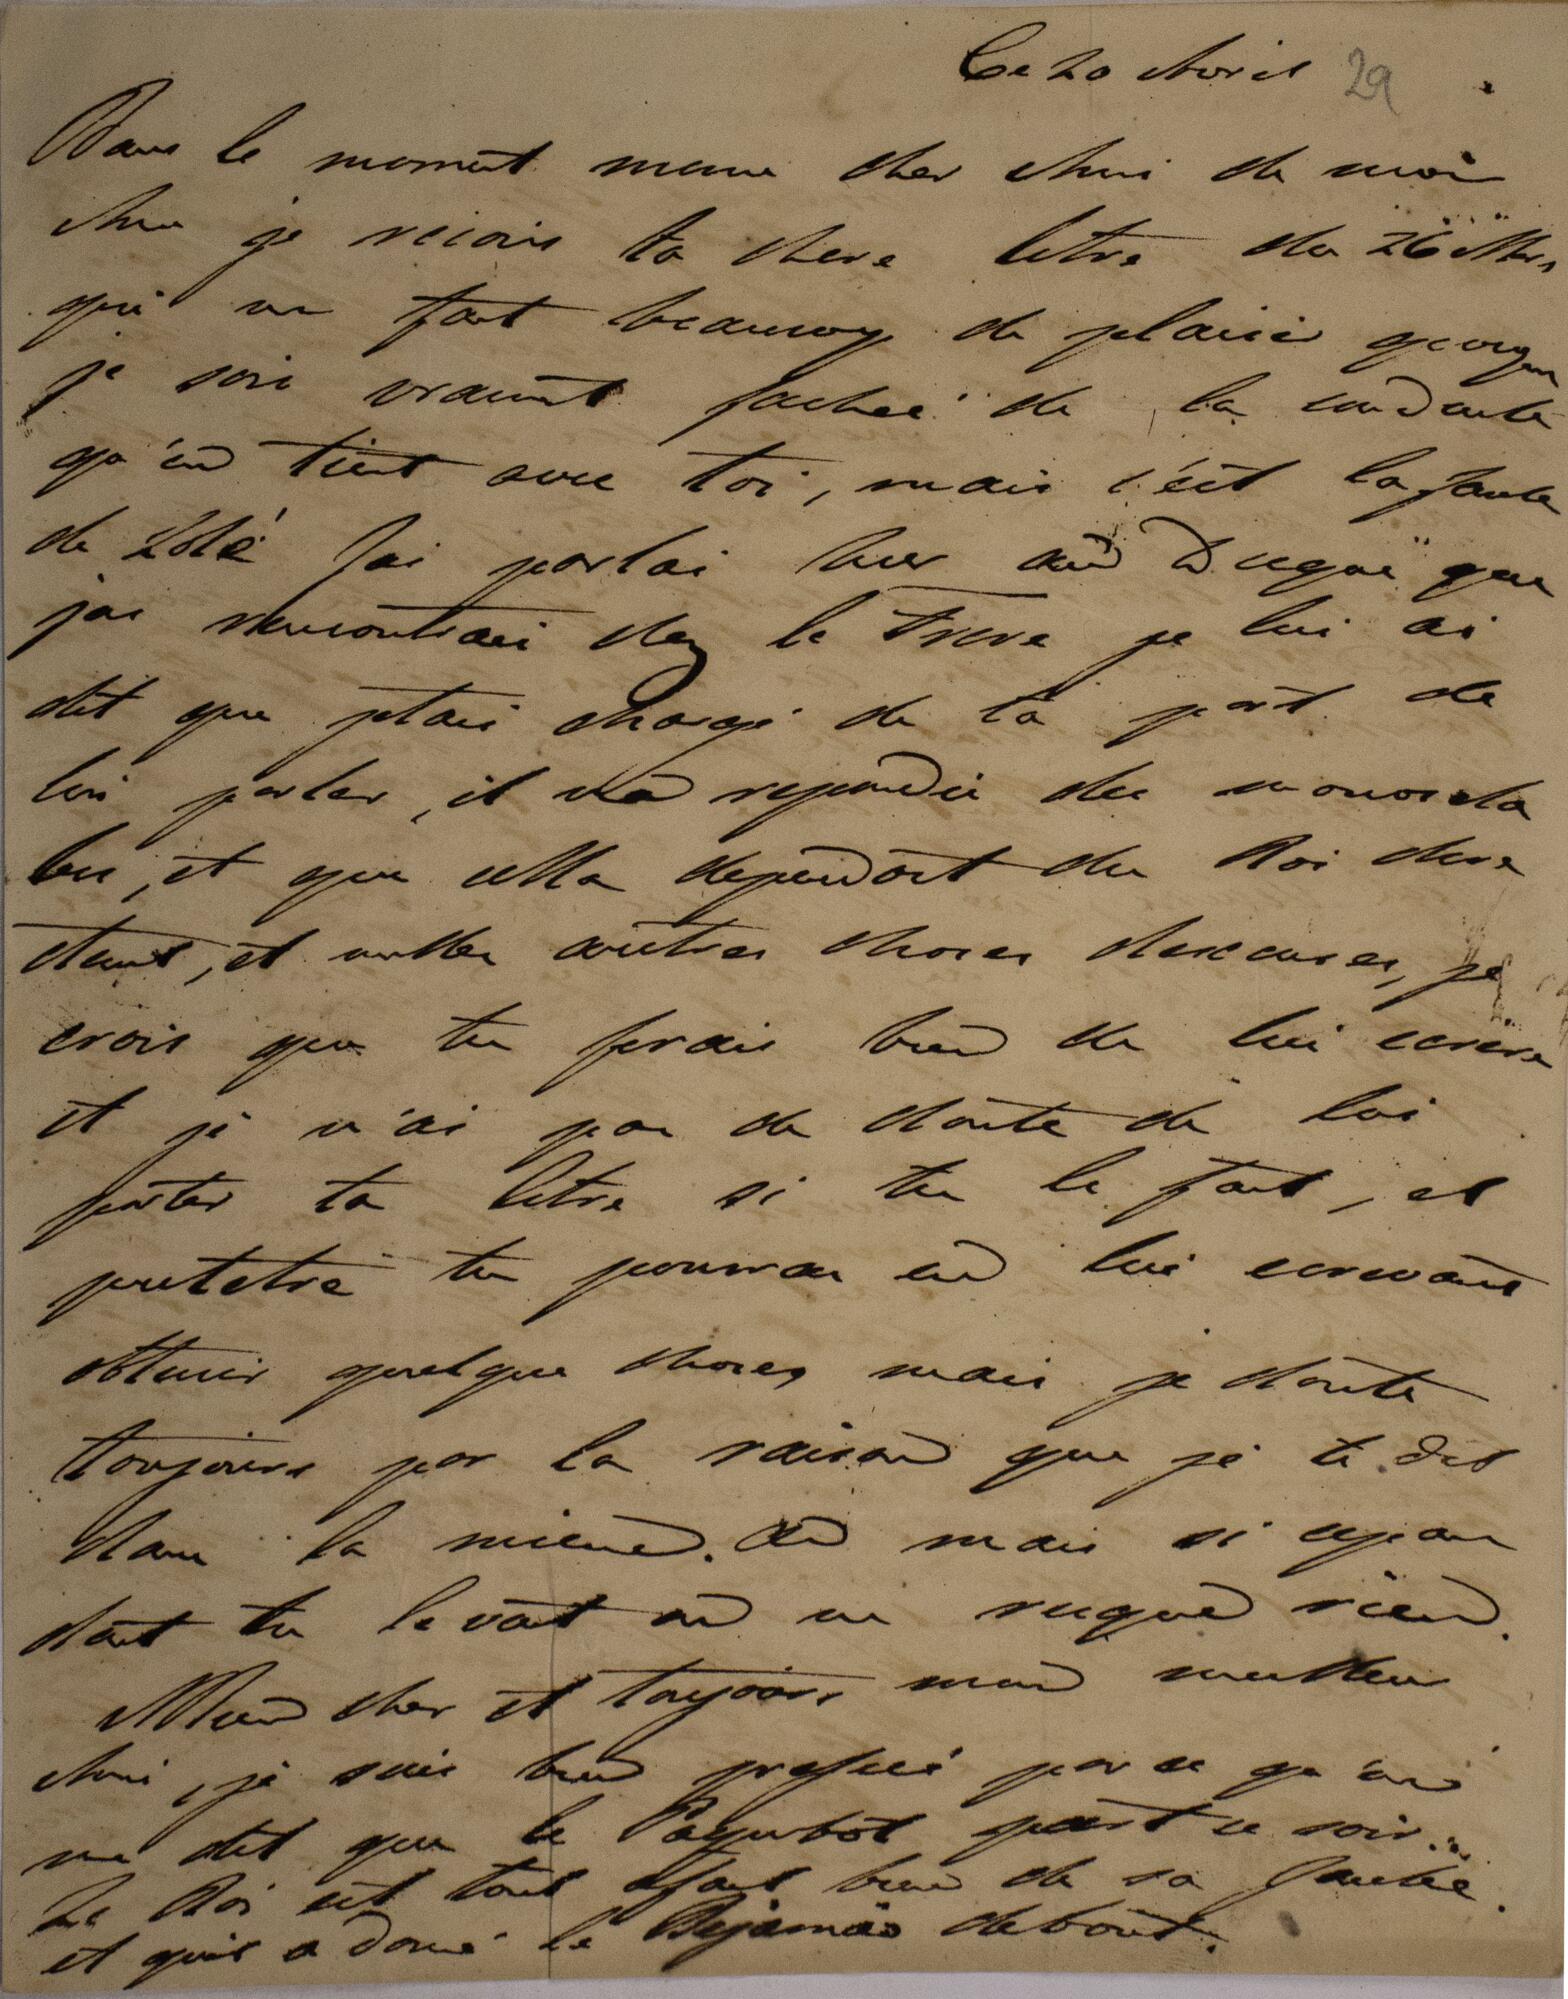 Ce 20 Avril 29
Dans le moment meme cher Ami de mon
Ame je recois ta chere letre du 26 Mars
qui me fait beaucoup de plaisir
je sois vraimt fachée de la conduite
qu'on tient avec toi, mais c'est la faute
de Lolé Jai parlai hier au Duque que
jai rencontrai chez le Frere je lui ai
dit que jetais chargé de ta part de
lui parler, il ma repondu des monosila
bes, et que cella dependoit du Roi
et milles autres choses, je
crois que tu ferais bien de lui ecrire
et je n'ai pas de doute de lui
porter ta letre si tu le fait, et
peutetre tu pourras en lui ecrivant
obtenir quelque choses mais je doute
toujours par la raison que je te dit
dans la miene. mais si cepan
dant tu le vait on ne risque rien.
Mon cher et toujours mon meilleur
Ami, je suis bien pressé parce qu'on
me dit que le Paquebot part ce soir
Le Roi est tout afait bien de sa Jambe
et quil a doné le Bejamão debout.